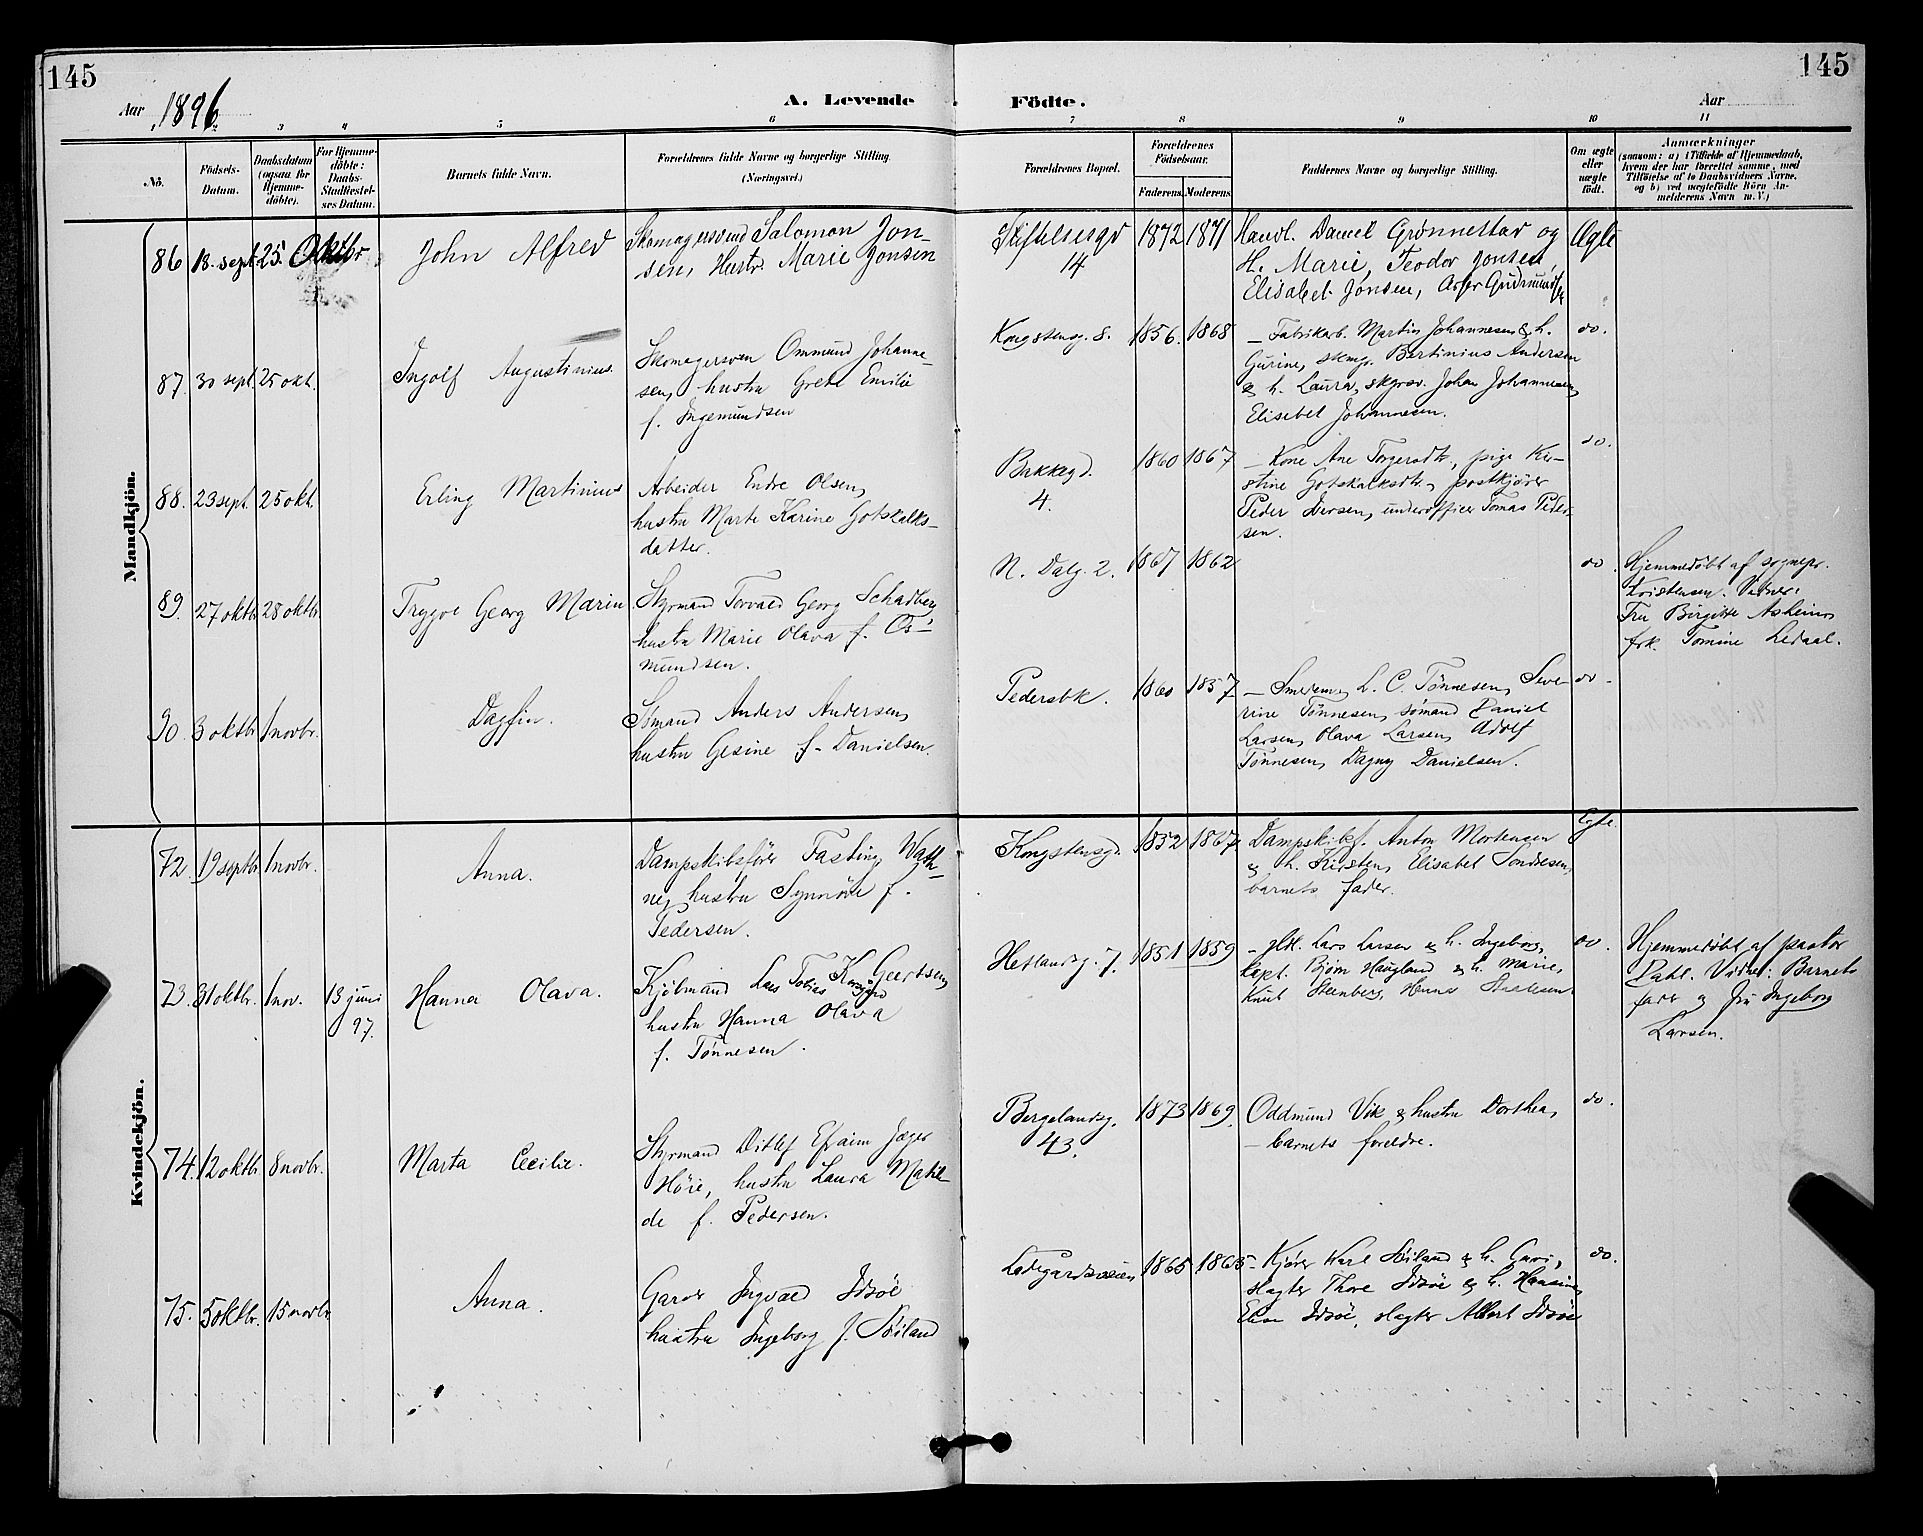 145
145
Aar 1896
A. Levende Födte.
Aar
3 4 5 6 7 8 9 10 11
No.
Födsels-Datum.
Daabsdatum (ogsaa for Hjemme-döbte).
For Hjemme-döbte: Daabs-Stadfæstel-ses Datum.
Barnets fulde Navn.
Forældrenes fulde Navne og borgerlige Stilling.
(Næringsvei.)
Forældrenes Bopæl.
Forældrenes Födselsaar.
Faderens. Moderens.
Faddernes Navne og borgerlige Stilling.
Om ægte eller uægte födt.
Anmærkninger
(saasom: a) i Tilfælde af Hjemmedaab,
hvem der har forrettet samme, med
Tilföielse af to Daabsvidners Navne,
og b) ved uægtefödte Börn An-
melderens Navn m. V.)
Mandkjön.
86 18. sept 25. Oktbr John Alfred
Skomagersvend Salomon Jon-
sen, Hustr. Marie Jonsen
14
1872 1871
Handl. Daniel Grønnestad og
H. Marie, Teodor Jonsen,
Elisabet Jonsen,
Ægte
87. 30 sept. 25 okt. Ingolf Augustinius.
Skomagersven Ommund Johanne-
sen, hustru Grete Emilie
f. Ingemundsen
Kongstensg. 8. 1856. 1868
– Fabrikarb. Martin Johannesen & h.
Gurine, skmg. Bertinius Andersen
& h. Laura, Johan Johannesen,
Elisebet Johannesen.
do.
88. 23 sept. 25 okt. Erling Martinius
Arbeider Endre Olsen,
hustru Marte Karine Gotskalks-
datter.
Bakkegd.
4.
1860 1867
– Kone Ane Torgersdtr, pige Ki-
stine Gotskalksdtr, postkjører
Peder Iversen, underofficer Tomas Peder-
sen.
do.
89. 27 oktbr 28 oktbr. Trygve Georg Marin
Styrmand Torvald Georg Schadberg
hustru Marie Olava f. Os-
mundsen.
N. Dalg. 2. 1867 1862
do.
Hjemmedøbt af sognepr.
Kristensen. Vidner:
Fru Birgitte Asheim,
frk. Tomine Ledaal.
90. 3 oktbr 1 novbr. Dagfin.
Sømand Anders Andersen,
hustru Gesine f. Danielsen.
Pedersbk. 1860 1857
– L. C. Tønnesen, Seve-
rine Tønnesen, sømand Daniel
Larsen, Olava Larsen, Adolf
Tønnesen, Dagny Danielsen.
do –
Kvindekjön.
72. 19 septbr. 1 novbr. Anna.
Dampskibsfører Fasting Vath-
ne, hustru Synnøve f.
Pedersen.
Kongstensgd. 1852 1867
Dampskibsf. Anton Mortensen
& h. Kirsten, Elisabet Tondresen,
barnets fader.
Ægte.
73. 31 oktbr. 1 nov. 13 juni
97.
Hanna Olava.
Kjøbmand Lars Tobias Geertsen,
hustru Hanna Olava
f. Tønnesen.
Hetlandsg. 7. 1851 1859
Lars Larsen & h. Ingeborg,
kapt. Bjørn Haugland & h. Marie,
Knut Steenberg,
do.
Hjemmedøbt af pastor
Dahl. Vidne: Barnets
fader og fru Ingeborg
Larsen.
74. 12 oktbr. 8 novbr. Marta Cecilie.
Styrmand Ditlef Efraim Jæger
Høie, hustru Laura Matil-
de f. Pedersen.
Bergelandsg.
43.
1873 1869.
Oddmund Vik & hustru Dorthea,
– barnets foreldre.
do.
75. 5 oktbr. 15 novbr Anna.
Garver Ingvald Idsøe
hustru Ingeborg f. Søiland
Ladegardsveien 1865 1865
– Kjører Karl Søiland & h. Guri,
slagter Thore Idsøe & h.
Elise Idsøe, slagter Albert Idsøe
do.